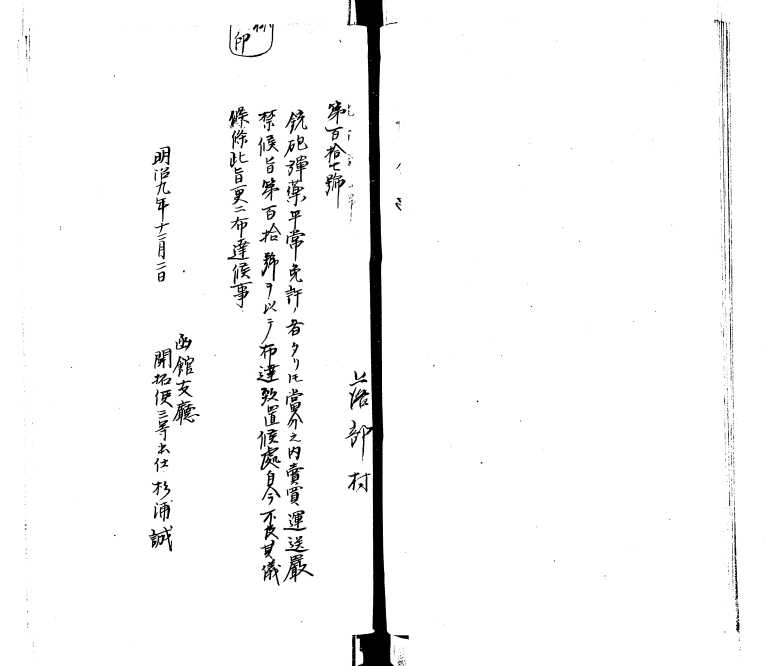 落部村
第百拾七號
銃砲彈藥平常免許ノ者タリ𪜈當分之内賣買運送嚴
禁候旨第百拾號ヲ以テ布達致置候處自今不及其儀
候條此旨更ニ布達候事
明治九年十二月二日
函館支廳
開拓使三等出仕杉浦誠
印